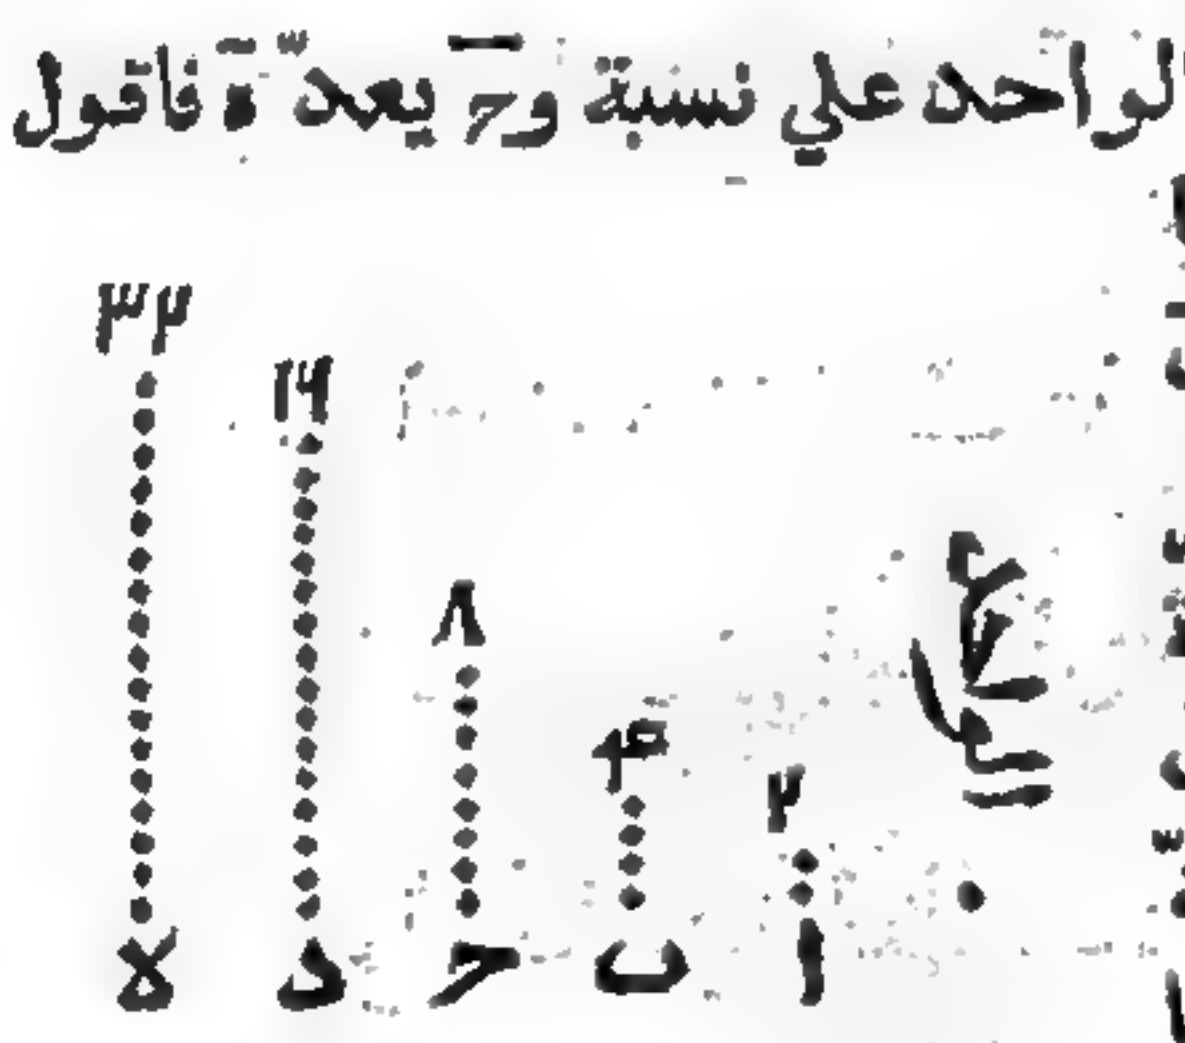 الواحد علي نسبة وح يعدّ ة فاقول
٣٢
١٦
٨
٤
٢
ا ب ح د ه